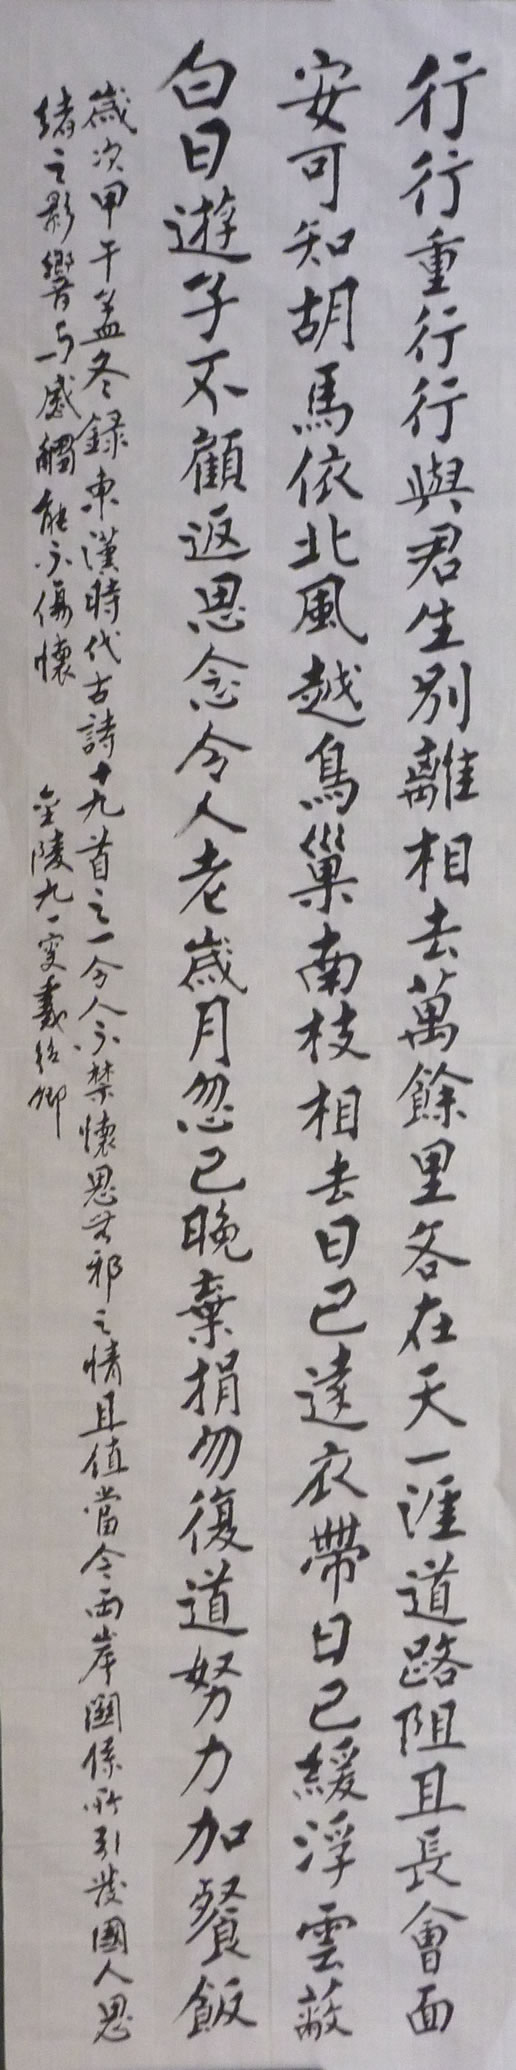 行行重行行與君生別離相去萬餘里各在天一涯道路阻且長會面
安可知胡馬依北風越鳥巢南枝相去日已遠衣帶日已緩浮雲蔽
白日遊子不顧返思念令人老歲月忽已晚棄捐勿復道努力加餐飯
歲次甲午孟冬錄東漢時代古詩十九首之一令人不禁懷思無邪之情且值當今兩岸關係所引發國人思
緒之影響与感觸能不傷懷
金陵九一叟戴紹卿